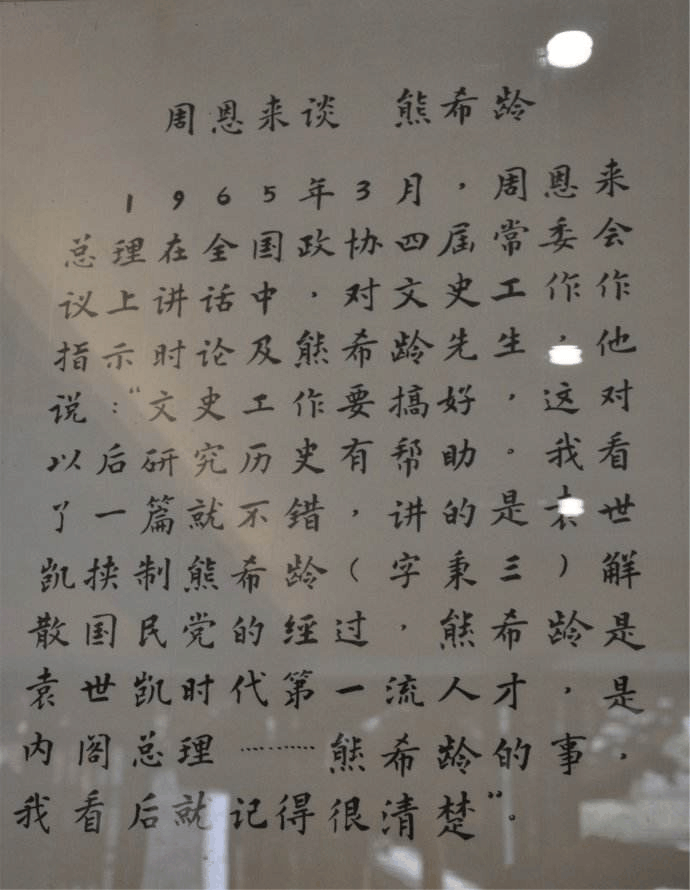 周恩来谈 熊希龄
1965年3月，周恩来
总理在全国政协四届常委会
议上讲话中，对文史工作作
指示时论及熊希龄先生，他
说：“文史工作要搞好，这对
以后研究历史有帮助。我看
了一篇就不错，讲的是袁世
凯挟制熊希龄（字秉三）解
散国民党的经过，熊希龄是
袁世凯时代第一流人才，是
内阁总理………熊希龄的事，
我看后就记得很清楚”。